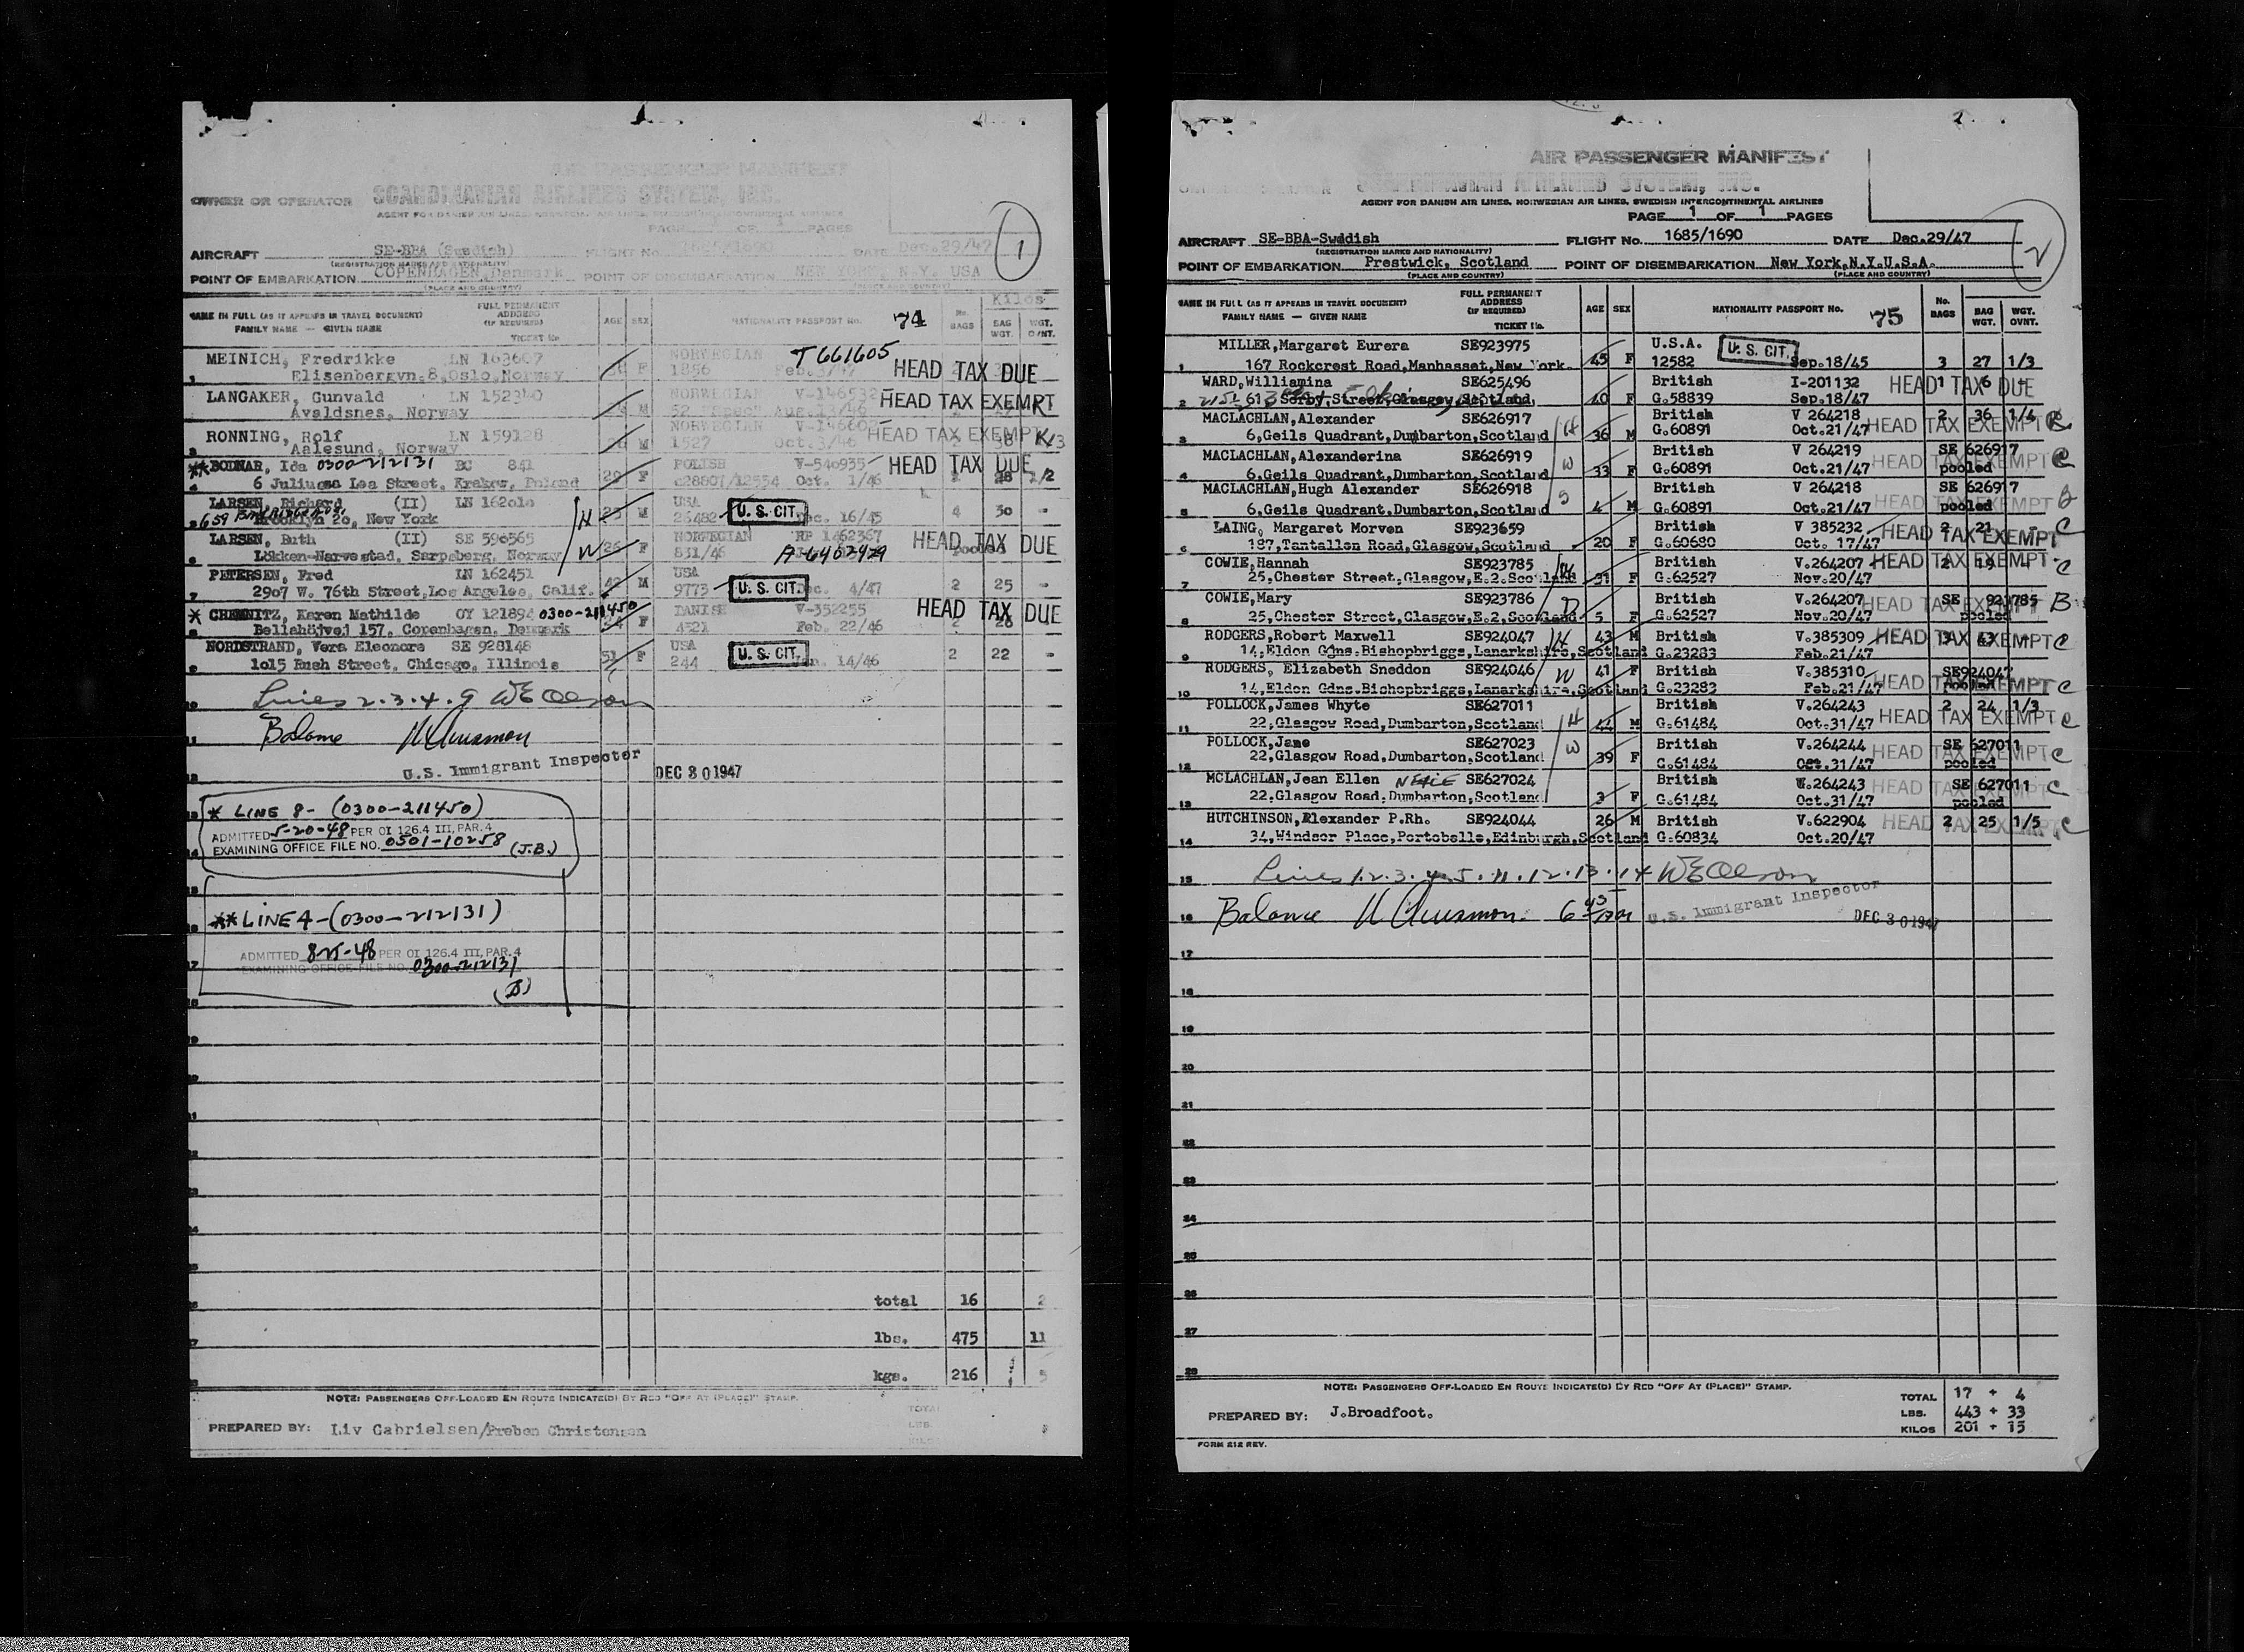 AIR PASSENGER MANIFEST
OWNER OR OPERATOR SCANDINAVIAN AIRLINES SYSTEM, INC.
AGENT FOR DANISH AIR LINES, NORWEGIAN AIR LINES, SWEDISH INTERCONTINENTAL AIRLINES
PAGE OF PAGES
1
AIRCRAFT SE-BBA (Swedish) FLIGHT No. 1685/1690 DATE Dec.29/47
(REGISTRATION MARKS AND NATIONALITY)
POINT OF EMBARKATION COPENHAGEN, Denmark POINT OF DISEMBARKATION NEW YORK, N.Y. USA
(PLACE AND COUNTRY) (PLACE AND COUNTRY)
Kilos
NAME IN FULL (AS IT APPEARS IN TRAVEL DOCUMENT) FULL PERMANENT ADDRESS (IF REQUIRED) AGE SEX NATIONALITY PASSPORT No. 74 No. BAGS BAG WGT. WGT. OVNT.
FAMILY NAME — GIVEN NAME
TICKET No.
MEINICH, Fredrikke LN 163607 NORWEGIAN T661605
1 Elisenbergvn.8, Oslo, Norway F 1856 Feb.3/47 HEAD TAX DUE
LANGAKER, Gunvald LN 152340 NORWEGIAN V-146532
Avaldsnes, Norway M 52 Aug.13/46 HEAD TAX EXEMPT
RONNING, Rolf LN 159128 NORWEGIAN HEAD TAX EXEMPT
3 Aalesund, Norway M 1527 Oct.3/46
** BODNAR, Ida 0300-212131 BC 841 POLISH V-540935 HEAD TAX DUE
4 6 Juliusza Lea Street, Krakow, Poland 29 F c28807/12554 Oct. 1/46 28 1/2
LARSEN, Richard (II) LN 162010 USA U. S. CIT.
Brooklyn 20, New York H 25 M 26482 Dec. 16/45 4 30 -
LARSEN, Ruth (II) SE 590565 NORWEGIAN RP 1462367 HEAD TAX DUE
6 Lökken-Narvestad, Sarpsberg, Norway W 26 F 831/46 A-6402929 pooled
PETERSEN, Fred LN 162451 USA U. S. CIT.
7 2907 W. 76th Street, Los Angeles, Calif. 42 M 9773 Dec. 4/47 2 25 -
* CHEMNITZ, Karen Mathilde OY 121894 0300-211450 DANISH V-352255 HEAD TAX DUE
8 Bellahöjvej 157, Copenhagen, Denmark 24 F 4521 Feb. 22/46 2 26
NORDSTRAND, Vera Eleonore SE 928148 USA U. S. CIT.
9 1015 Rush Street, Chicago, Illinois 51 F 244 Jan. 14/46 2 22 -
10 Lines 2.3.4.9 WE Olson
11 Balance
12 U.S. Immigrant Inspector DEC 30 1947
13 * LINE 8- (0300-211450)
ADMITTED 5-20-48 PER OI 126.4 III, PAR.4
14 EXAMINING OFFICE FILE NO. 0501-10258 (J.B.)
15
16 ** LINE 4-(0300-212131)
ADMITTED 8-5-48 PER OI 126.4 III, PAR.4
17 EXAMINING OFFICE FILE NO. 0300-212131
18 (B)
19
20
21
22
23
24
25
26 total 16 2
27 lbs. 475 11
28 kgs. 216 5
NOTE: PASSENGERS OFF-LOADED EN ROUTE INDICATE(D) BY RED "OFF AT (PLACE)" STAMP.
TOTAL
LBS.
KILOS
PREPARED BY: Liv Gabrielsen/Preben Christensen
AIR PASSENGER MANIFEST
OWNER OR OPERATOR SCANDINAVIAN AIRLINES SYSTEM, INC.
AGENT FOR DANISH AIR LINES, NORWEGIAN AIR LINES, SWEDISH INTERCONTINENTAL AIRLINES
PAGE 1 OF 1 PAGES
2
AIRCRAFT SE-BBA-Swedish FLIGHT No. 1685/1690 DATE Dec.29/47
(REGISTRATION MARKS AND NATIONALITY)
POINT OF EMBARKATION Prestwick, Scotland POINT OF DISEMBARKATION New York,N.Y.U.S.A.
(PLACE AND COUNTRY) (PLACE AND COUNTRY)
NAME IN FULL (AS IT APPEARS IN TRAVEL DOCUMENT) FULL PERMANENT ADDRESS (IF REQUIRED) AGE SEX NATIONALITY PASSPORT No. 75 No. BAGS BAG WGT. WGT. OVNT.
FAMILY NAME — GIVEN NAME
TICKET No.
MILLER,Margaret Eurera SE923975 U.S.A. U. S. CIT.
1 167 Rockcrest Road,Manhasset,New York. 45 F 12582 Sep.18/45 3 27 1/3
WARD,Williamina SE625496 British I-201132 HEAD TAX DUE 1 6
2 Sorby Street,Glasgow,Scotland, 40 F G.58839 Sep.18/47
MACLACHLAN,Alexander SE626917 British V 264218 2 36 1/4
3 6,Geils Quadrant,Dumbarton,Scotland H 36 M G.60891 Oct.21/47 HEAD TAX EXEMPT C
MACLACHLAN,Alexanderina SE626919 British V 264219 SE 626917
4 6,Geils Quadrant,Dumbarton,Scotland W 33 F G.60891 Oct.21/47 HEAD TAX EXEMPT pooled C
MACLACHLAN,Hugh Alexander SE626918 British V 264218 SE 626917
5 6,Geils Quadrant,Dumbarton,Scotland S 4 M G.60891 Oct.21/47 HEAD TAX EXEMPT pooled B
LAING, Margaret Morven SE923659 British V 385232 2 21 -
6 187,Tantallon Road,Glasgow,Scotland 20 F G.60680 Oct. 17/47 HEAD TAX EXEMPT C
COWIE,Hannah SE923785 British V.264207 HEAD TAX EXEMPT 2 19
7 25,Chester Street,Glasgow,E.2.Scotland 31 F G.62527 Nov.20/47 C
COWIE,Mary SE923786 British V.264207 HEAD TAX EXEMPT SE 923785 B
8 25,Chester Street,Glasgow,E.2,Scotland 5 F G.62527 Nov.20/47 pooled
RODGERS,Robert Maxwell SE924047 H 43 M British V.385309 HEAD TAX EXEMPT 3 43 C
9 14,Eldon Gdns.Bishopbriggs,Lanarkshire,Scotland G.23283 Feb.21/47
RODGERS, Elizabeth Sneddon SE924046 W 41 F British V.385310 SE924047
10 14,Eldon Gdns.Bishopbriggs,Lanarkshire,Scotland G.23283 Feb.21/47 HEAD TAX EXEMPT pooled C
POLLOCK,James Whyte SE627011 British V.264243 2 24 1/3
11 22,Glasgow Road,Dumbarton,Scotland H 44 M G.61484 Oct.31/47 HEAD TAX EXEMPT C
POLLOCK,Jane SE627023 British V.264244 SE 627011
12 22,Glasgow Road,Dumbarton,Scotland W 39 F G.61484 Oct.31/47 HEAD TAX EXEMPT pooled C
MCLACHLAN,Jean Ellen NEICE SE627024 British V.264243 SE 627011
13 22,Glasgow Road,Dumbarton,Scotland 3 F G.61484 Oct.31/47 HEAD TAX EXEMPT pooled C
HUTCHINSON,Alexander P.Rh. SE924044 26 M British V.622904 HEAD TAX EXEMPT 2 25 1/5 C
14 34,Windsor Place,Portobello,Edinburgh,Scotland G.60834 Oct.20/47
15 Lines 1.2.3.4.5.11.12.13.14 WE Olson
16 Balance U.S. Immigrant Inspector DEC 30 1947
17
18
19
20
21
22
23
24
25
26
27
28
NOTE: PASSENGERS OFF-LOADED EN ROUTE INDICATE(D) BY RED "OFF AT (PLACE)" STAMP.
TOTAL 17 + 4
PREPARED BY: J.Broadfoot. LBS. 443 + 33
KILOS 201 + 15
FORM 212 REV.